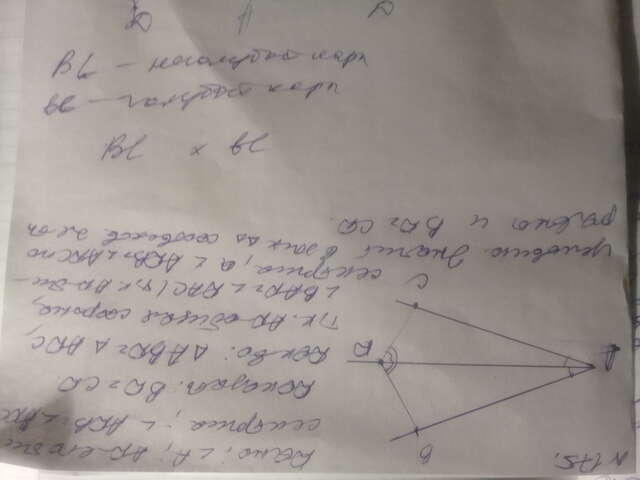 № 175.
B
A
D
C
Дано: ∠A; AD-его бис
сектриса; ∠ADB=∠ADC
Доказать: BD=CD.
Док-во: △ABD=△ADC,
т.к. AD-общая сторона,
∠BAD=∠DAC (т.к. AD-бис-
сектриса, а ∠ADB=∠ADC по
условию. Значит в этих △△ соответств. эл-ты
равны и BD=CD.